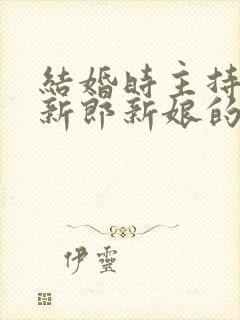 結婚時主持
新郎新娘的
伊靈